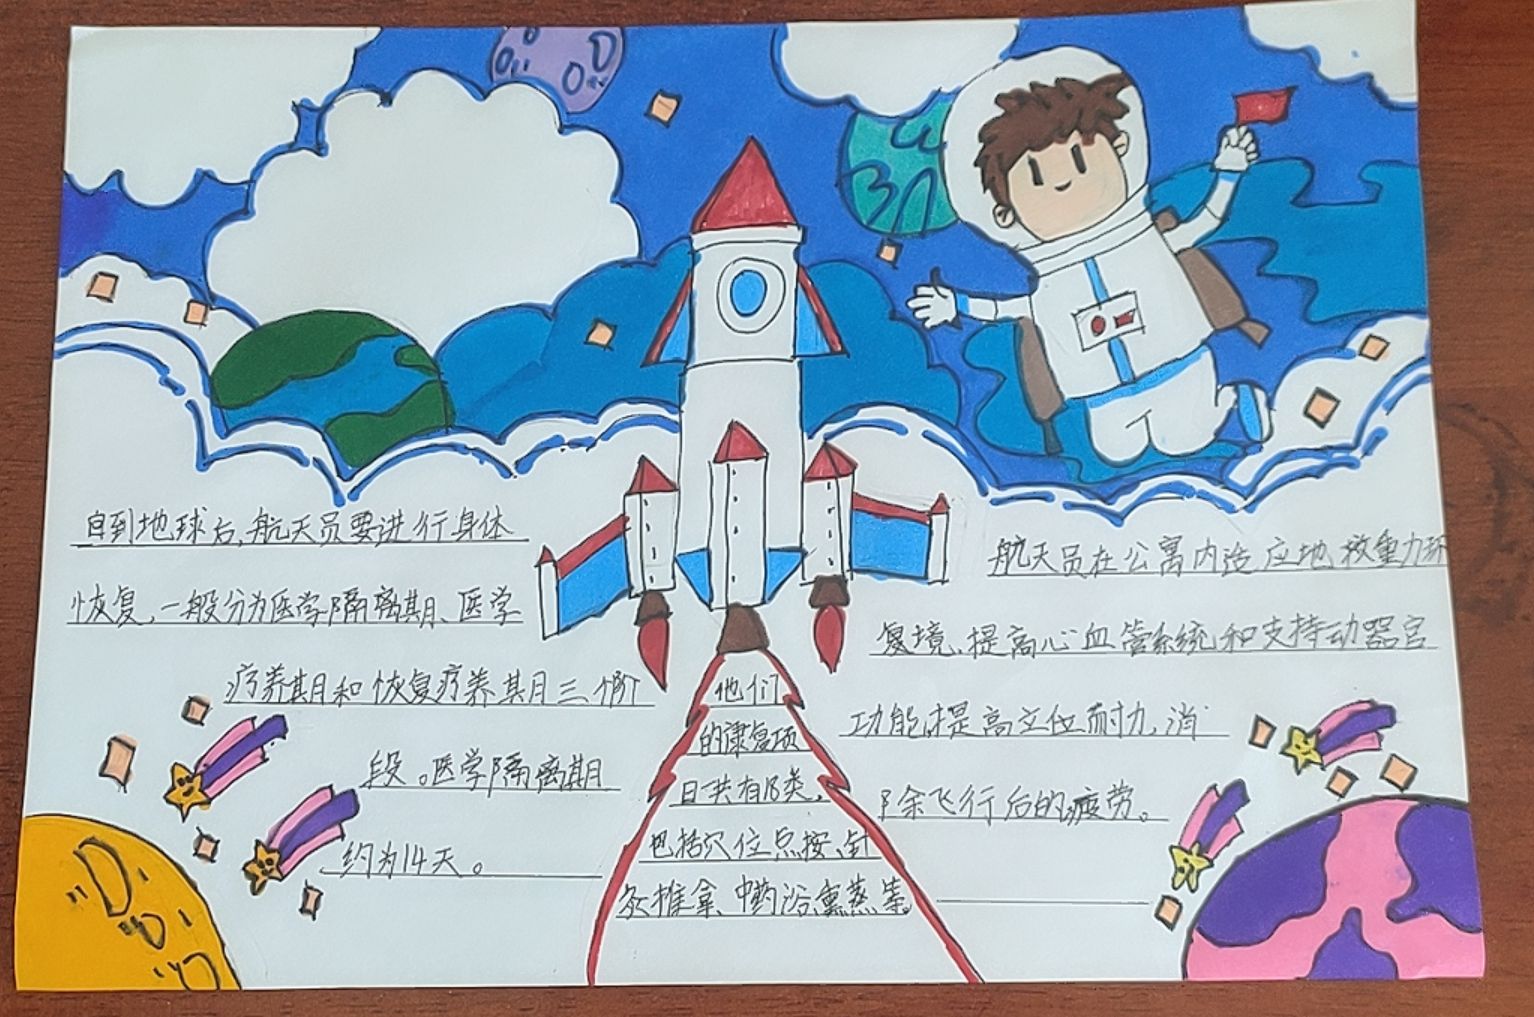 自到地球后,航天员要进行身体
恢复,一般分为医学隔离期、医学
疗养期和恢复疗养期三个阶
段。医学隔离期
约为14天。
他们
的康复项
目共有18类,
包括穴位点按、针
灸推拿、中药浴熏蒸等。
航天员在公寓内适应地救重力环
复境,提高心血管系统和支持动器官
功能,提高立位耐力,消
除余飞行后的疲劳。